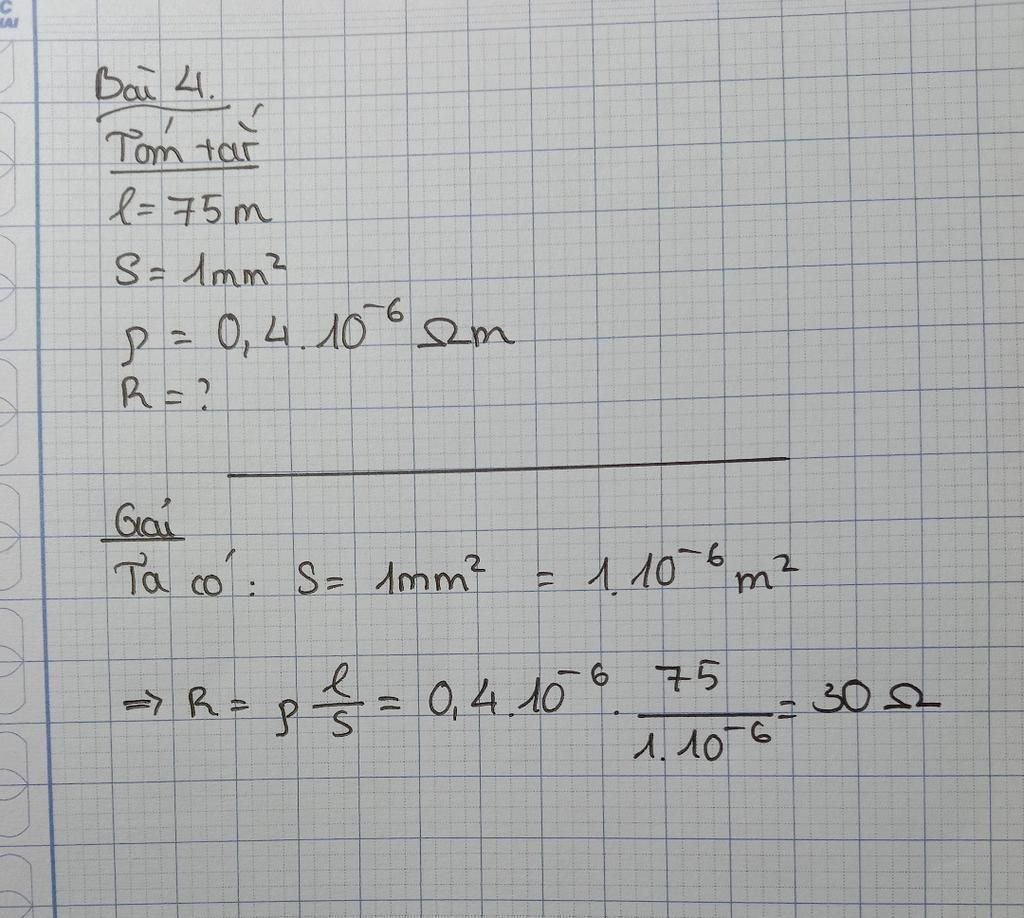 C
HAI
Bài 4.
Tóm tắt
l = 75 m
S = 1mm²
ρ = 0,4.10⁻⁶ Ωm
R = ?
Giải
Ta có: S = 1mm² = 1.10⁻⁶ m²
=> R = ρ l/S = 0,4.10⁻⁶ . 75/1.10⁻⁶ = 30 Ω